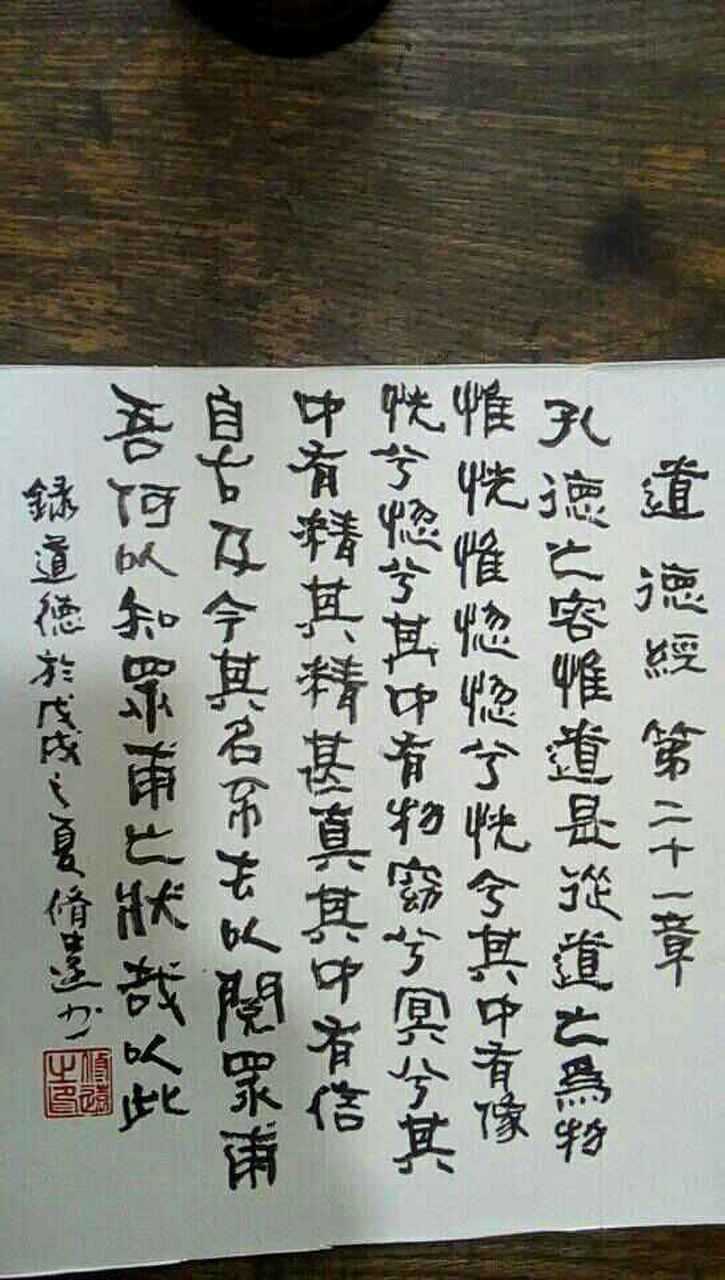 道德經第二十一章
孔德之容惟道是從道之為物
惟恍惟惚惚兮恍兮其中有像
恍兮惚兮其中有物窈兮冥兮其
中有精其精甚真其中有信
自古及今其名不去以閱眾甫
吾何以知眾甫之狀哉以此
錄道德於戊戌之夏脩遠